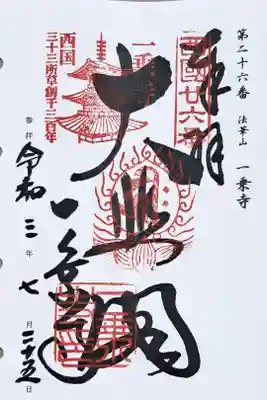 第二十六番 法華山 一乗寺
奉拝
西國廿六番
大悲閣
一乗寺
西国
三十三所草創千三百年
参拝 令和 三 年 七 月 二十五 日